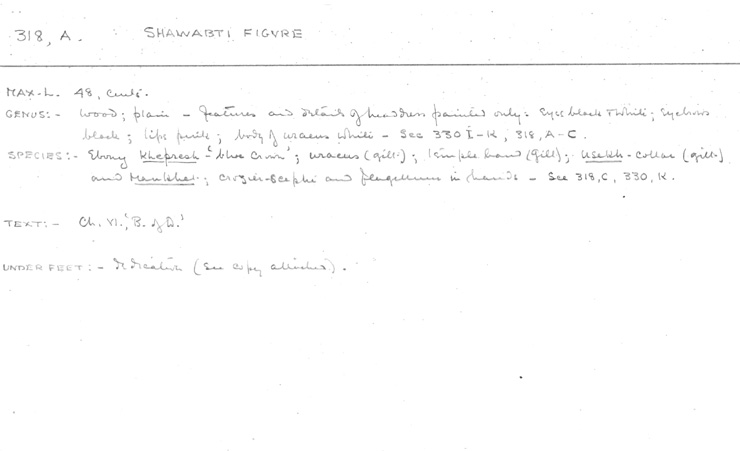 318, A. SHAWABTI FIGVRE
MAX-L. 48, cents.
GENUS:- Wood; plain - features and details of headdress painted only: Eyes black & White; Eyebrows
black; lips pink; body of uraeus white - See 330 I-K, 318, A-C.
SPECIES:- Ebony Khepresh - 'blue Crown'; uraeus (gilt); temple band (gilt); Usekh-collar (gilt)
and Mankhet; Crozier-Sceptre and flagellum in hands - See 318, C, 330, K.
TEXT:- Ch. VI. 'B. of D.'
UNDER FEET:- dedication (see copy attached).